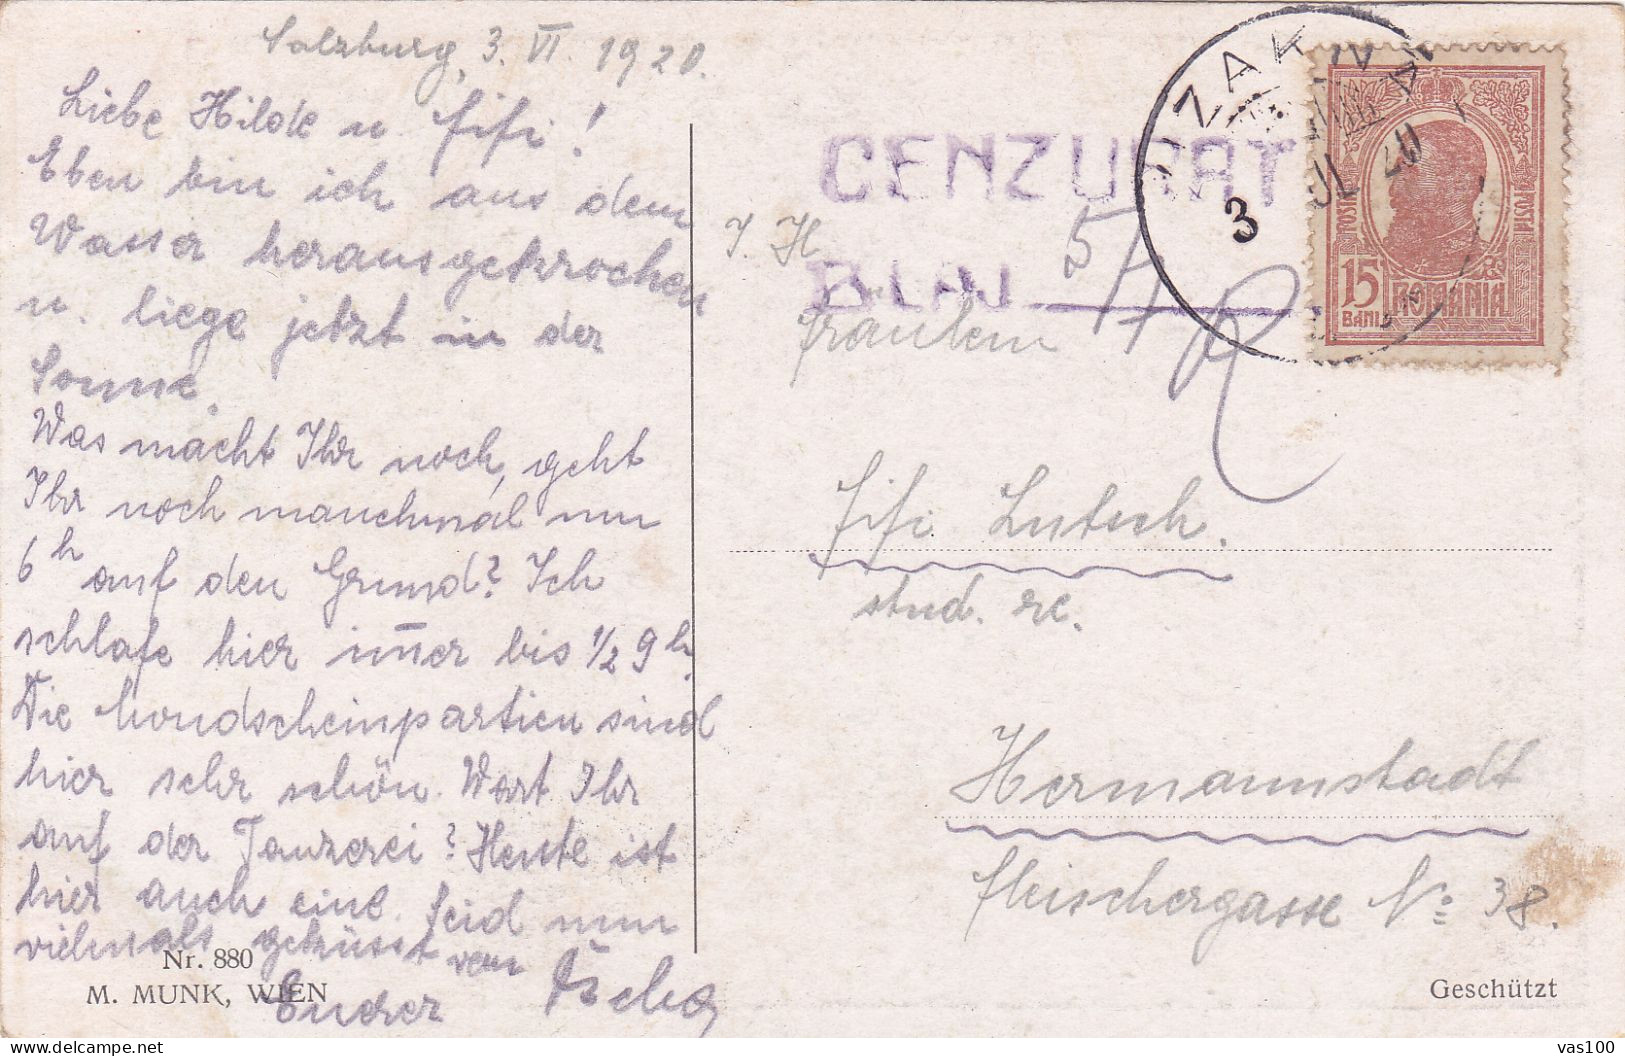 Salzburg, 3. VI. 1920.
Liebe Hilde u. Fifi!
Eben bin ich aus dem
Wasser herausgekrochen
u. liege jetzt in der
Sonne.
Was macht Ihr noch, geht
Ihr noch manchmal um
6h auf den Grund? Ich
schlafe hier immer bis 1/2 9h.
Die Mondscheinpartien sind
hier sehr schön. Wart Ihr
auf der Tanzerei? Heute ist
hier auch eine. Seid nun
vielmals geküsst von
Eurer
Nr. 880
M. MUNK, WIEN
CENZURAT
BLAJ
3 JUL 20
POSTA
POSTA
15
BANI
ROMANIA
I. H
Fräulein
Fifi Lutsch.
stud. re.
Hermannstadt
Fleischergasse No: 38.
Geschützt
vas100